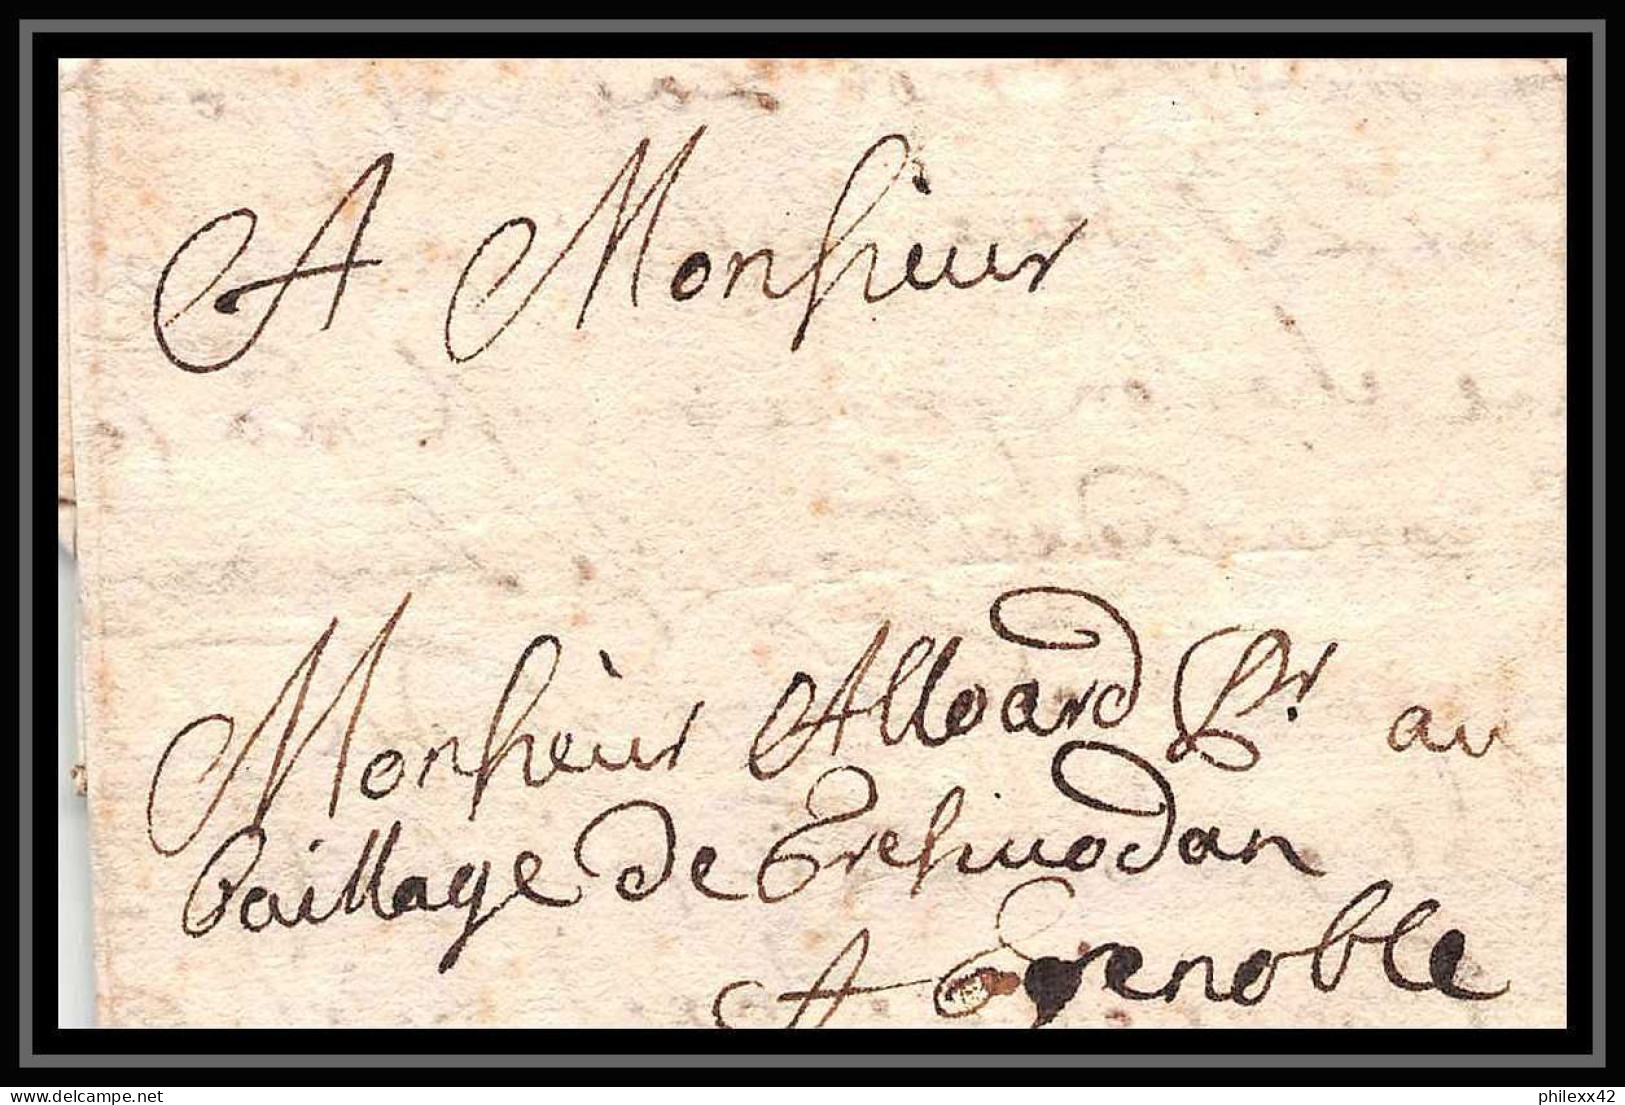 A Monsieur
Monsieur Alloard Pr. au
baillage de Gresivodan
A Grenoble
delcampe.net
philexx42